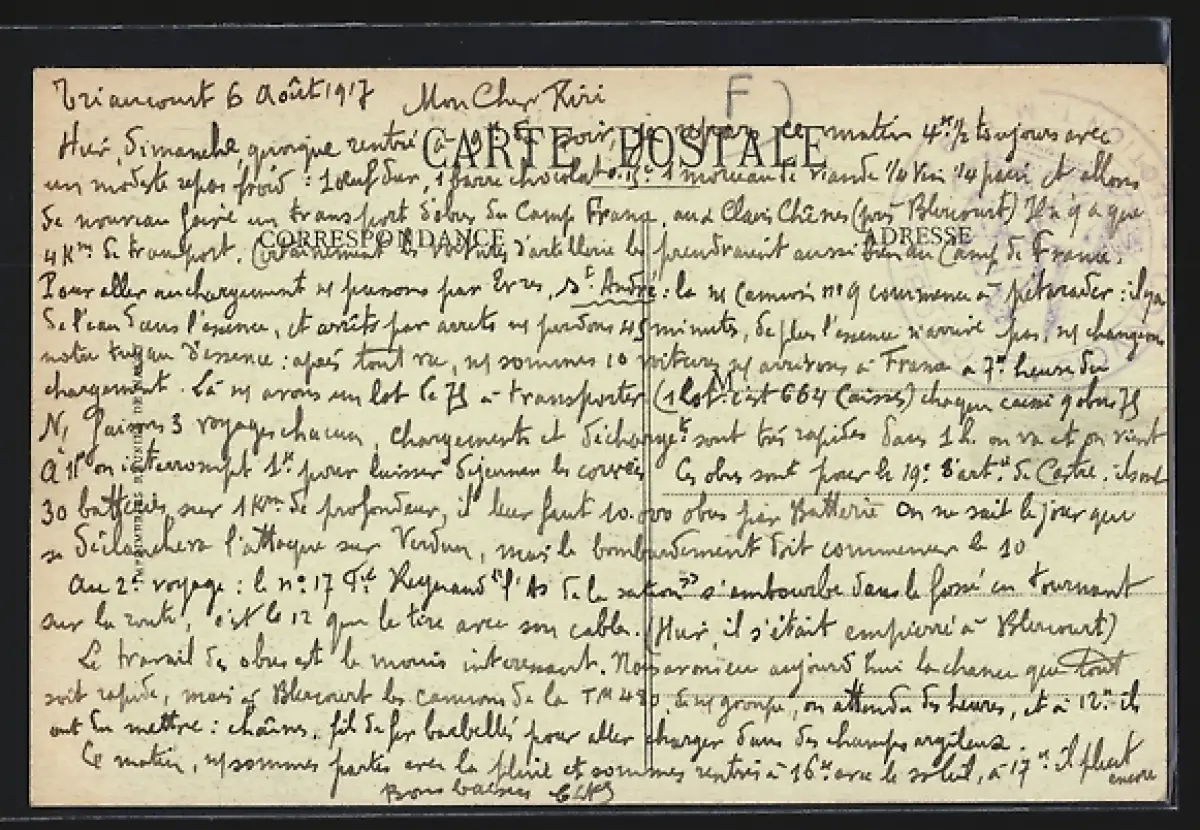 Triaucourt 6 Août 1917 Mon Cher Riri
F
Hier, dimanche, quoique rentré à 19h soir, je repars ce matin 4h 1/2 toujours avec
CARTE POSTALE
un modeste repas froid : 1 œuf dur, 1 barre chocolat 1 morceau de viande 1/4 vin 1/4 pain et allons
de nouveau faire un transport d'obus du Camp Franç, aux Clairs Chênes (près Blercourt) Il n'y a que
CORRESPONDANCE
ADRESSE
4 Km de transport. Certainement les voitures d'artillerie les prendraient aussi bien au Camp de France.
Pour aller au chargement ns passons par St André : là camion no 9 commence à pétarader : il y a
de l'eau dans l'essence, et arrêts par arrêts ns perdons 45 minutes, de plus l'essence n'arrive pas, ns changeons
notre tuyau d'essence : après tout va, ns sommes 10 voitures ns arrivons à Franç à 7h heure du
chargement. Là ns avons un lot de 75 à transporter (1 lot c'est 664 caisses) chaque caisse 9 obus 75
Ns faisons 3 voyages chacun, chargements et décharget sont très rapides dans 1 h. on va et on vient
A 11h on interrompt 1h pour laisser déjeuner les corvées Ces obus sont pour le 19e d'arte de Castre. ils ont
30 batteries, sur 1 Km de profondeur, il leur faut 10.000 obus par Batterie On ne sait le jour que
se déclanchera l'attaque sur Verdun, mais le bombardement doit commencer le 10
Au 2e voyage : le no 17 Reynaud "l'As de la section" s'embourbe dans le fossé en tournant
sur la route, c'est le 12 que le tire avec son cable. (Hier, il s'était empierré à Blercourt)
Le travail des obus est le moins interessant. Nous avons eu aujourd'hui la chance que tout
soit rapide, mais à Blercourt les camions de la TM 480, de ns groupe, on attendu des heures, et à 12h ils
ont du mettre : chaînes, fil de fer barbelés pour aller charger dans des champs argileux.
Ce matin, ns sommes partis avec la pluie et sommes rentrés à 16h avec le soleil, à 17h il pleut
encore
Bons baisers